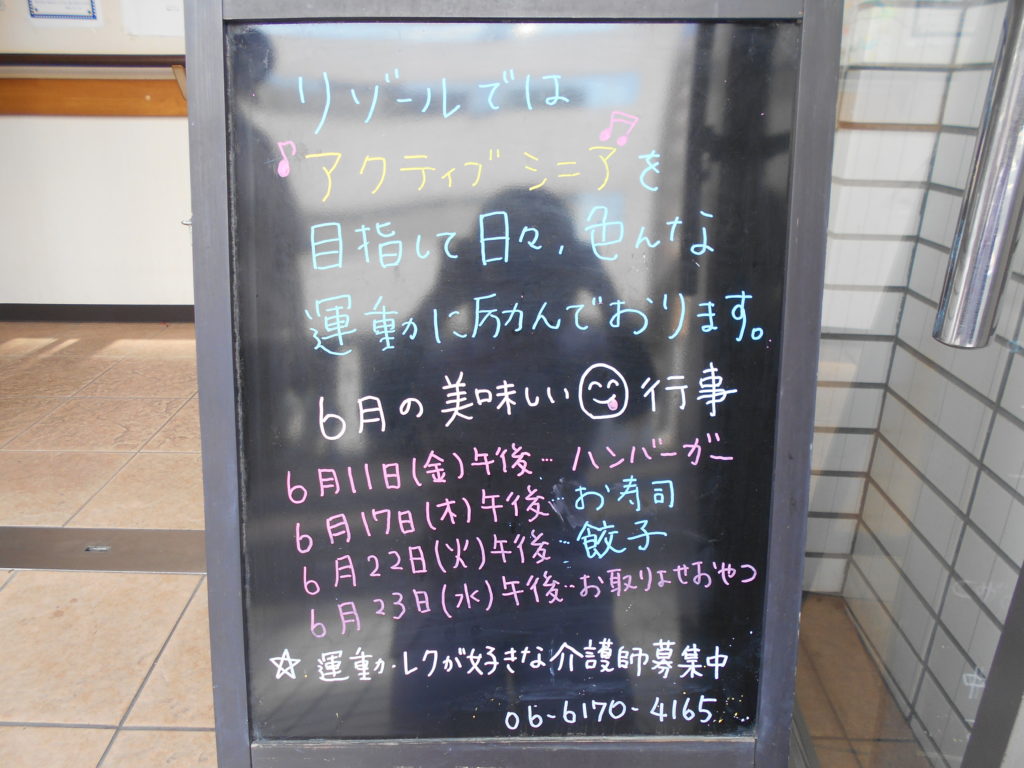 リゾールでは
アクティブシニアを
目指して日々、色んな
運動に励んでおります。
6月の美味しい行事
6月11日(金)午後…ハンバーガー
6月17日(木)午後…お寿司
6月22日(火)午後…餃子
6月23日(水)午後…お取りよせおやつ
☆運動・レクが好きな介護師募集中
06-6170-4165